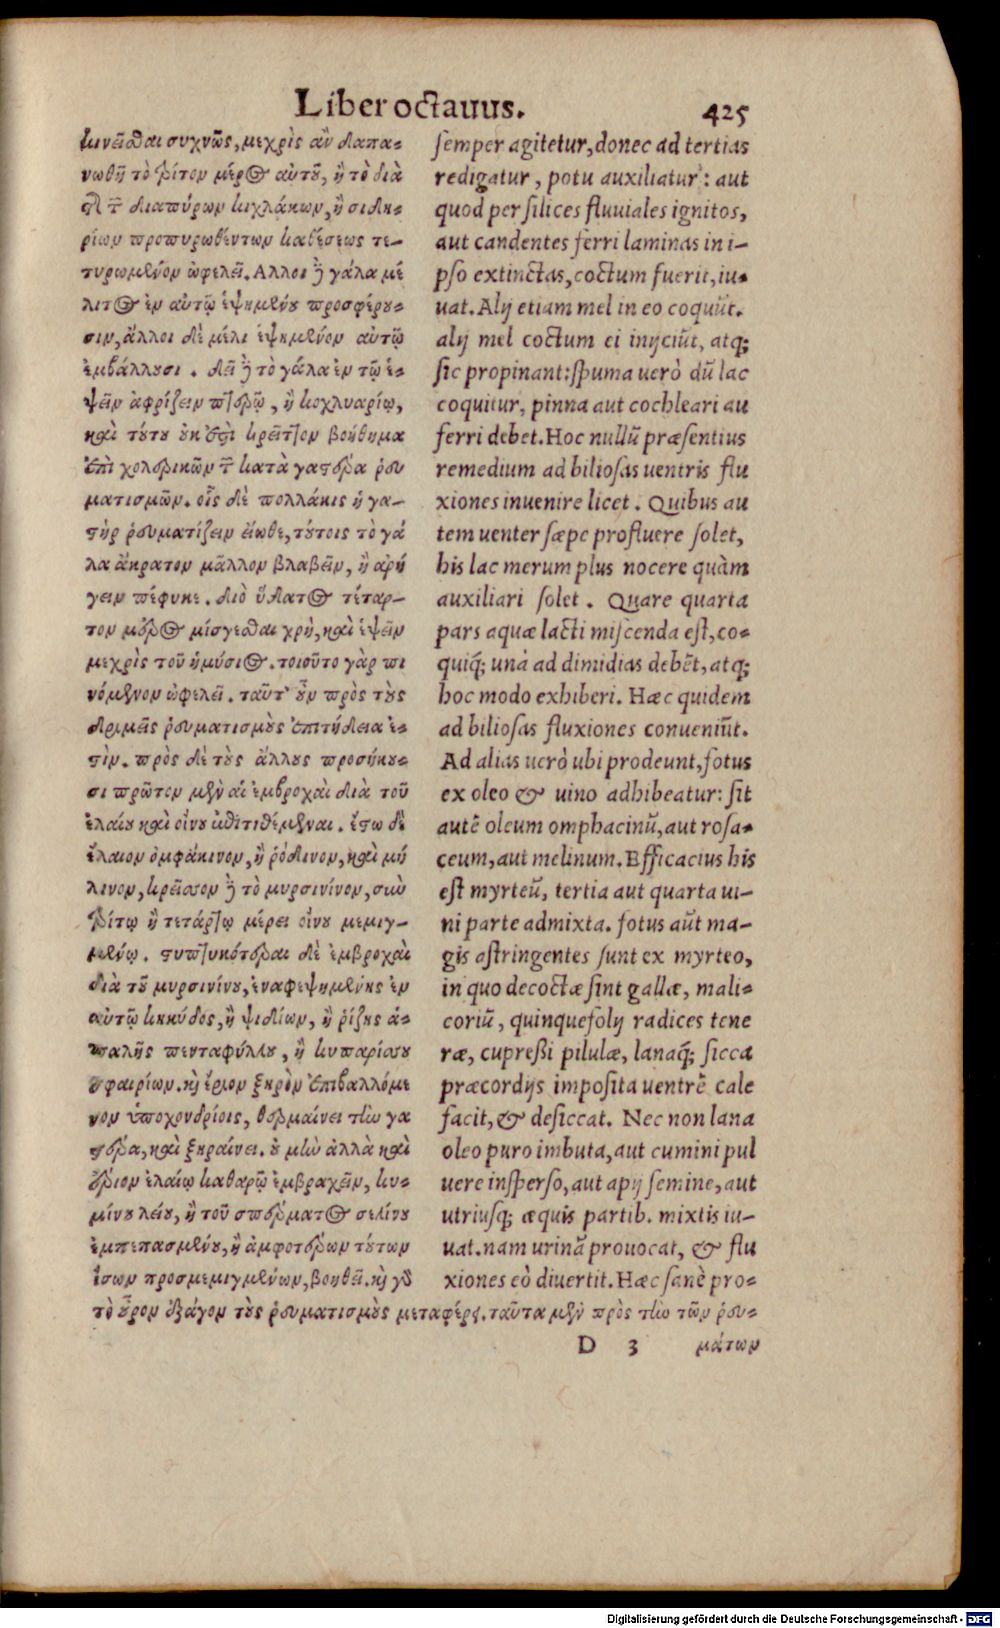 Liber octavus. 425
κινεῖσθαι συχνῶς, μεχρὶς ἂν δαπα-
νωθῇ τὸ τρίτον μέρος αὐτοῦ, ἢ τὸ διὰ
τῶν διαπύρων κιχλάκων, ἢ σιδη-
ρίων προπυρωθέντων καθέσεως τε-
τυρωμένον ὠφελεῖ. Αλλοι ἢ γάλα μέ
λιτος ἐν αὐτῷ ἑψημένου προσφέρου-
σιν, ἄλλοι δὲ μέλι ἑψημένον αὐτῷ
ἐμβάλλουσι. δεῖ ἢ τὸ γάλα ἐν τῷ ἑ-
ψεῖν ἀφρίζειν πτερῷ, ἢ κοχλυαρίῳ,
καὶ τούτου οὐκ ἔστι κρεῖττον βοήθημα
ἐπὶ χολερικῶν τῶν κατὰ γαστέρα ῥευ
ματισμῶν. οἷς δὲ πολλάκις ἡ γα-
στὴρ ῥευματίζειν εἴωθε, τούτοις τὸ γά
λα ἄκρατον μᾶλλον βλαβεῖν, ἢ ἀρή
γειν πέφυκε. διὸ ὕδατος τέταρ-
τον μέρος μίσγεσθαι χρὴ, καὶ ἑψεῖν
μεχρὶς τοῦ ἡμύσιος. τοιοῦτο γὰρ πι
νόμενον ὠφελεῖ. ταῦτ' οὖν πρὸς τοὺς
δριμεῖς ῥευματισμοὺς ἐπιτήδεια ἐ-
στὶν. πρὸς δὲ τοὺς ἄλλους προσήκου-
σι πρῶτον μὲν αἱ ἐμβροχαὶ διὰ τοῦ
ἐλαίου καὶ οἴνου ἐπιτιθέμεναι. ἔστω δὲ
ἔλαιον ὀμφάκινον, ἢ ῥόδινον, καὶ μή
λινον, κρεῖσσον ἢ τὸ μυρσινίνον, σὺν
τρίτῳ ἢ τετάρτῳ μέρει οἴνου μεμιγ-
μένῳ. στυπτικότεραι δὲ ἐμβροχαὶ
διὰ τοῦ μυρσινίνου, ἐναφεψημένης ἐν
αὐτῷ κηκύδος, ἢ ψιδίων, ἢ ῥίζης ἁ-
παλῆς πενταφύλλου, ἢ κυπαρίσσου
σφαιρίων. καὶ ἔριον ξηρὸν ἐπιβαλλόμε
νον ὑποχονδρίοις, θερμαίνει τὴν γα
στέρα, καὶ ξηραίνει. οὐ μὴν ἀλλὰ καὶ
ἔριον ἐλαίῳ καθαρῷ ἐμβραχεῖν, κυ-
μίνου λείου, ἢ τοῦ σπέρματος σελίνου
ἐμπεπασμένου, ἢ ἀμφοτέρων τούτων
ἴσων προσμεμιγμένων, βοηθεῖ. καὶ γὰρ
τὸ οὖρον ἐξάγον τοὺς ῥευματισμοὺς μεταφέρει. ταῦτα μὲν πρὸς τὴν τῶν ῥευ-
semper agitetur, donec ad tertias
redigatur, potu auxiliatur: aut
quod per silices fluviales ignitos,
aut candentes ferri laminas in i-
pso extinctas, coctum fuerit, iu-
uat. Alij etiam mel in eo coquũt.
alij mel coctum ei inijciũt, atq;
sic propinant: spuma uerò dũ lac
coquitur, pinna aut cochleari au
ferri debet. Hoc nullũ præsentius
remedium ad biliosas uentris flu
xiones inuenire licet. Quibus au
tem uenter sæpe profluere solet,
his lac merum plus nocere quàm
auxiliari solet. Quare quarta
pars aquæ lacti miscenda est, co-
quiq́; unà ad dimidias debẽt, atq;
hoc modo exhiberi. Hæc quidem
ad biliosas fluxiones conueniũt.
Ad alias uerò ubi prodeunt, fotus
ex oleo & uino adhibeatur: sit
autẽ oleum omphacinũ, aut rosa-
ceum, aut melinum. Efficacius his
est myrteũ, tertia aut quarta ui-
ni parte admixta. fotus aũt ma-
gis astringentes sunt ex myrteo,
in quo decoctæ sint gallæ, mali-
coriũ, quinquefolij radices tene
ræ, cupreßi pilulæ, lanaq́; sicca
præcordijs imposita uentrẽ cale
facit, & desiccat. Nec non lana
oleo puro imbuta, aut cumini pul
uere insperso, aut apij semine, aut
utriusq; æquis partib. mixtis iu-
uat. nam urinã prouocat, & flu
xiones eò diuertit. Hæc sanè pro-
D 3 μάτων
Digitalisierung gefördert durch die Deutsche Forschungsgemeinschaft - DFG